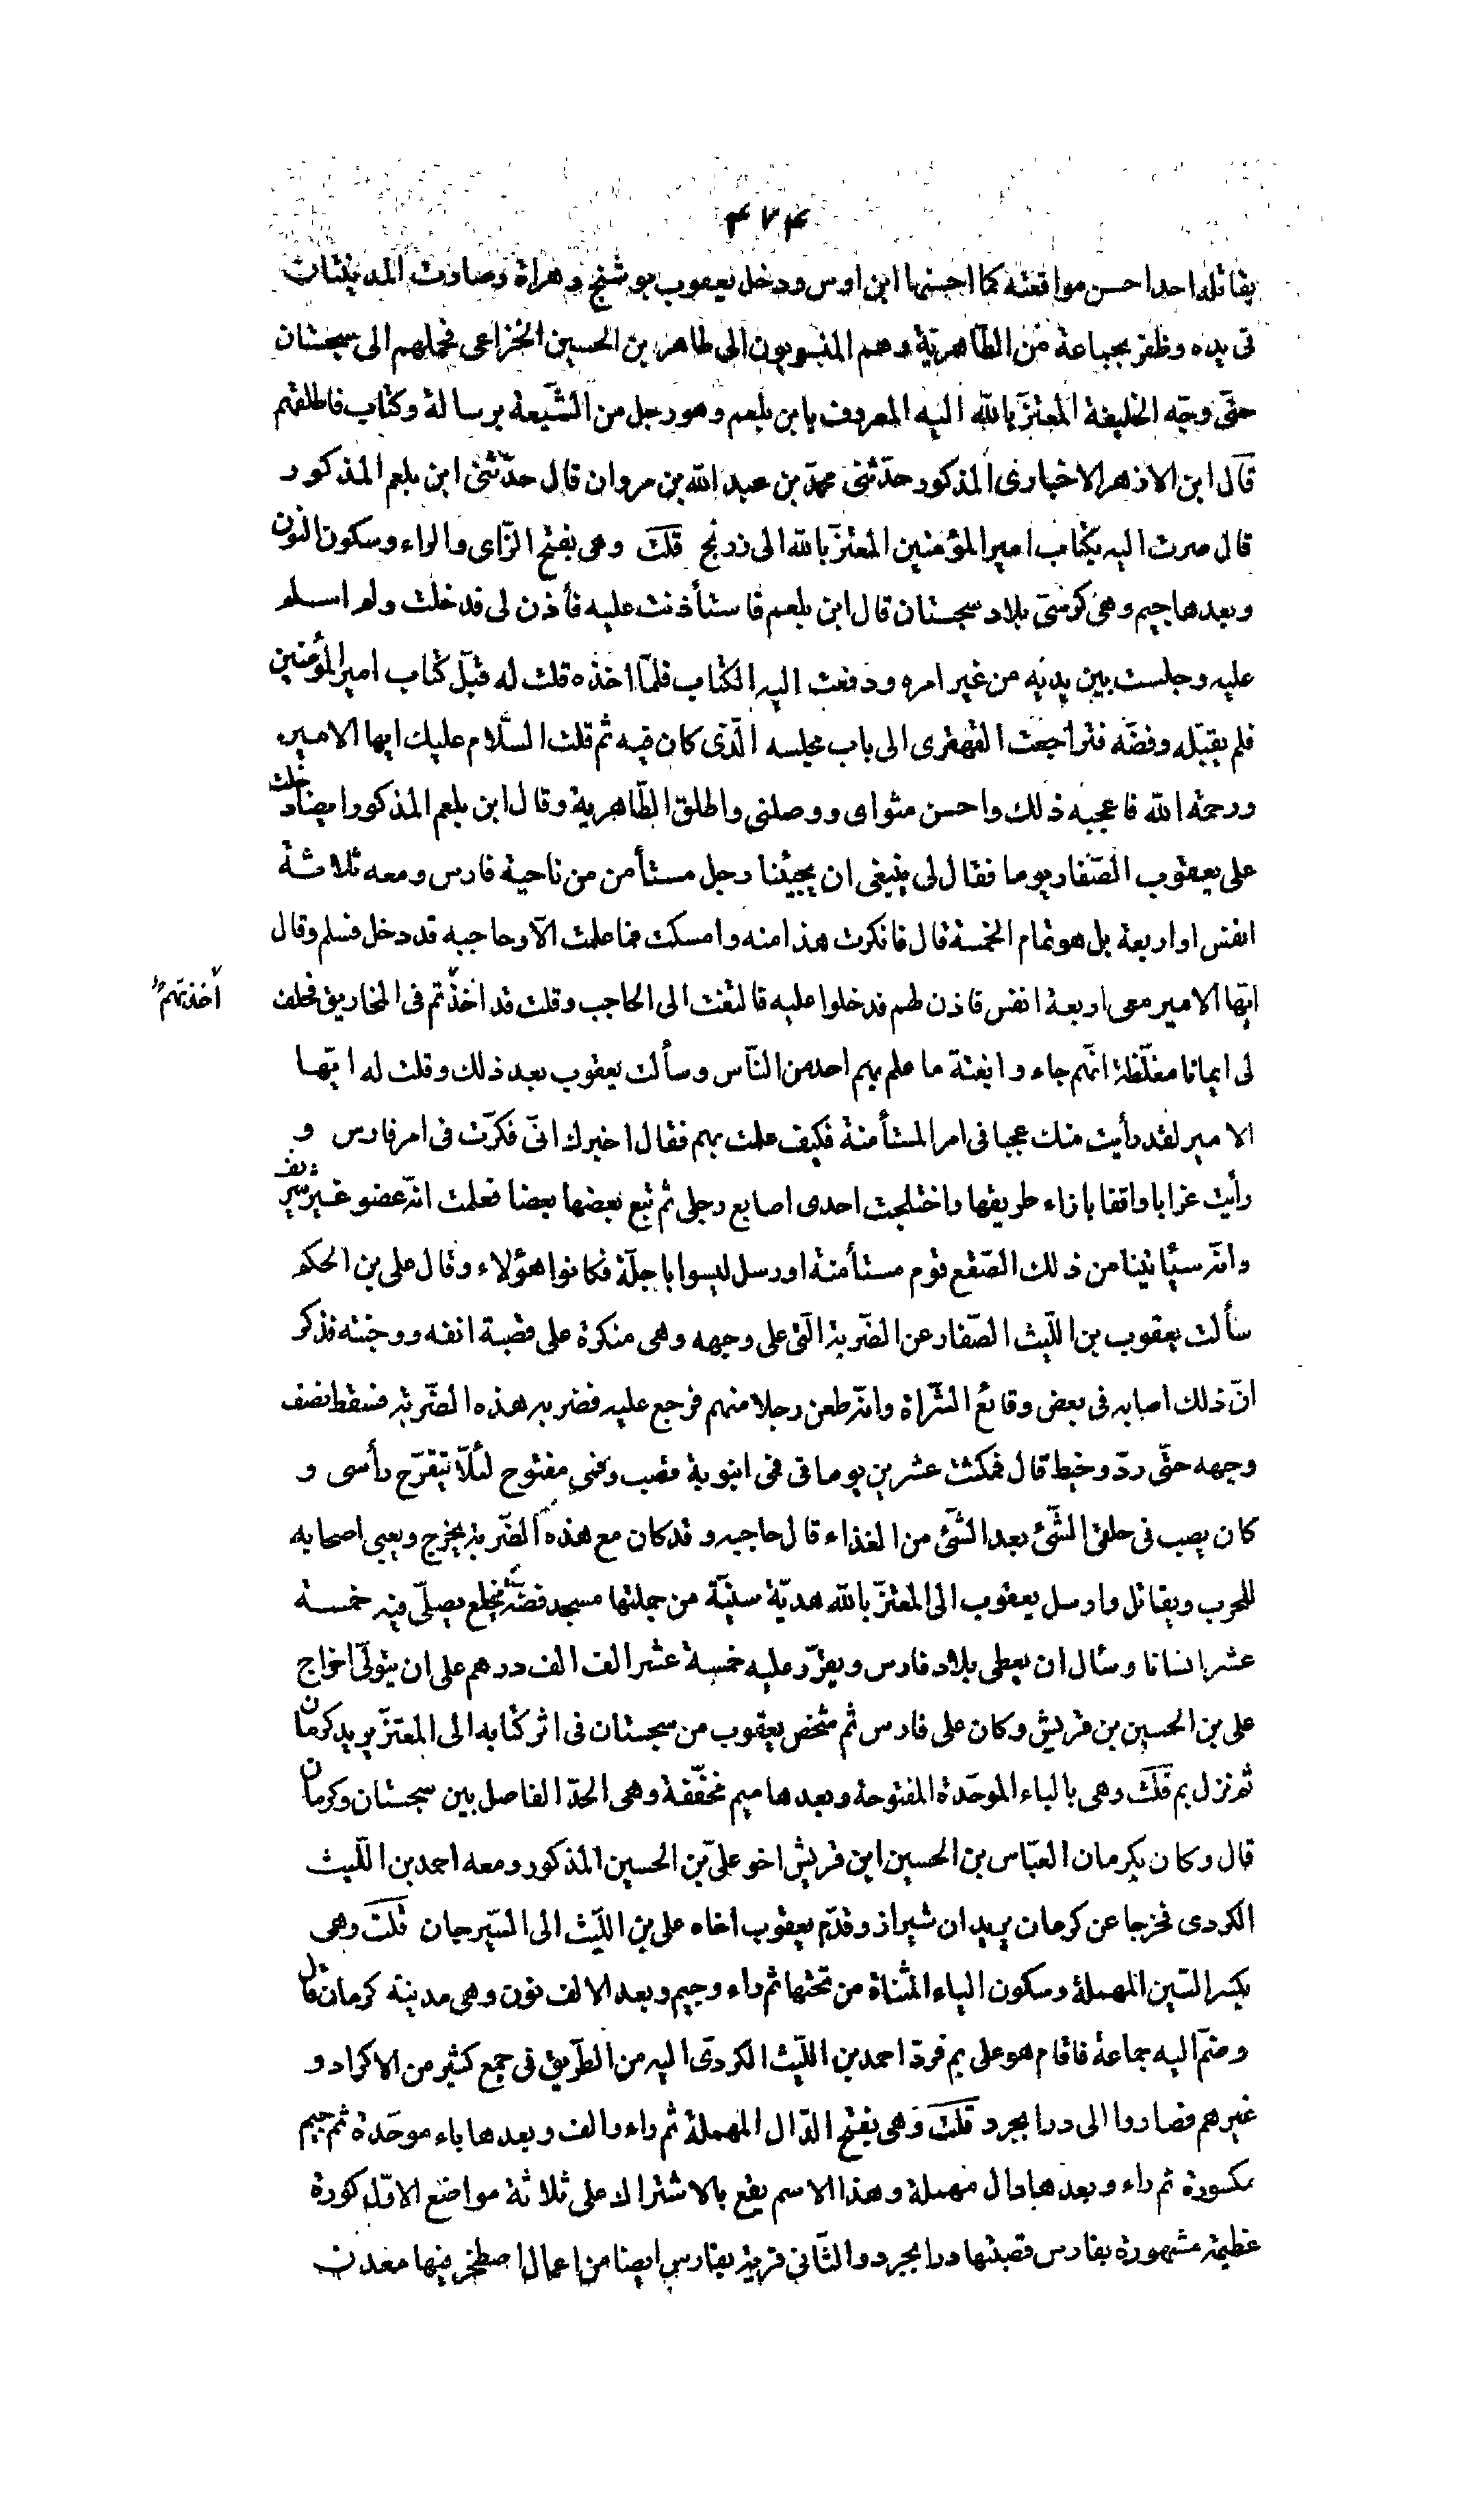 ۴۷۴
يقاتله احد احسن مواقعته كما احسنها ابن اوس ودخل يعقوب بوشنج وهراة وصارت المدينتان
فى يده وظفر بجماعة من الطّاهريّة وهم المنسوبون الى طاهر بن الحسين الخزاعى فحملهم الى سجستان
حتّى وجّه الخليفة المعتزّ بالله اليه المعروف بابن بلعم وهو رجل من الشّيعة برسالة وكتاب فاطلقهم
قال ابن الازهر الاخبارى المذكور حدّثنى محمّد بن عبد الله بن مروان قال حدّثنى ابن بلعم المذكور
قال صرت اليه بكتاب امير المؤمنين المعتزّ بالله الى زرنج قلت وهى بفتح الزّاى والراء وسكون النون
وبعدها جيم وهى كرسىّ بلاد سجستان قال ابن بلعم فاستأذنت عليه فأذن لى فدخلت ولم اسلم
عليه وجلست بين يديه من غير امره ودفعت اليه الكتاب فلمّا اخذه قلت له قبّل كتاب امير المؤمنين
فلم يقبّله وفضّه فتراجعت القهقرى الى باب مجلسه الّذى كان فيه ثم قلت السّلام عليك ايها الامير
ورحمة الله فاعجبه ذلك واحسن مثواى ووصلنى واطلق الطّاهرية وقال ابن بلعم المذكور ايضا دخلت
على يعقوب الصّفار يوما فقال لى ينبغى ان يجيئنا رجل مستأمن من ناحية فارس ومعه ثلاثة
انفس او اربعة بل هو تمام الخمسة قال فانكرت هذا منه وامسكت فما علمت الّا وحاجبه قد دخل فسلم وقال
ايّها الامير معى اربعة انفس فاذن لهم فدخلوا عليه فالتفت الى الحاجب وقلت قد اخذتم فى المخاريق فحلف
أخذتهم
لى ايمانا مغلّظة انّهم جاءوا بغتة ما علم بهم احد من النّاس وسألت يعقوب بعد ذلك وقلت له ايّها
الامير لقد رأيت منك عجبا فى امر المستأمنة فكيف علمت بهم فقال اخبرك انّى فكّرت فى امر فارس و
رأيت غرابا واقفا بازاء طريقها واختلجت احدى اصابع رجلى ثم تبع بعضها بعضا فعلمت انّه عضو غير شريف
وانّه سيأتينا من ذلك الصّقع قوم مستأمنة او رسل ليسوا باجلّة فكانوا هؤلاء وقال على بن الحكم
سألت يعقوب بن اللّيث الصّفار عن الضّربة الّتى على وجهه وهى منكرة على قصبة انفه ووجنته فذكر
انّ ذلك اصابه فى بعض وقائع الشّراة وانّه طعن رجلا منهم فرجع عليه فضربه هذه الضّربة فسقط نصف
وجهه حتّى ردّ وخيط قال فمكثت عشرين يوما فى فمى انبوبة قصب وفمى مفتوح لئلّا يتقرّح رأسى و
كان يصب فى حلقى الشّئ بعد الشّئ من الغذاء قال حاجبه وقد كان مع هذه الضّربة يخرج ويعبى اصحابه
للحرب ويقاتل وارسل يعقوب الى المعتزّ بالله هديّة سنيّة من جملتها مسجد فضّة مخلع يصلّى فيه خمسة
عشر انسانا وسأل ان يعطى بلاد فارس ويقرّر عليه خمسة عشر الف الف درهم على ان يتولّى اخراج
على بن الحسين بن قريش وكان على فارس ثم شخص يعقوب من سجستان فى اثر كتابه الى المعتزّ يريد كرمان
ثم نزل بم قلت وهى بالباء الموحّدة المفتوحة وبعدها ميم مخفّفة وهى الحدّ الفاصل بين سجستان وكرمان
قال وكان بكرمان العبّاس بن الحسين ابن قريش اخو علىّ بن الحسين المذكور ومعه احمد بن اللّيث
الكردى فخرجا عن كرمان يريدان شيراز وقدّم يعقوب اخاه على بن اللّيث الى السّيرجان قلت وهى
بكسر السّين المهملة وسكون الياء المثناة من تحتها ثم راء وجيم وبعد الالف نون وهى مدينة كرمان قال
وضمّ اليه جماعة فاقام هو على بم فردّ احمد بن اللّيث الكردىّ اليه من الطّريق فى جمع كثير من الاكراد و
غيرهم فصاروا الى درابجرد قلت وهى بفتح الدّال المهملة ثم راء والف وبعدها باء موحّدة ثم جيم
مكسورة ثم راء وبعدها دال مهملة وهذا الاسم يقع بالاشتراك على ثلاثة مواضع الاوّل كورة
عظيمة مشهورة بفارس قصبتها درابجرد والثّانى قرية بفارس ايضا من اعمال اصطخر فيها معدن